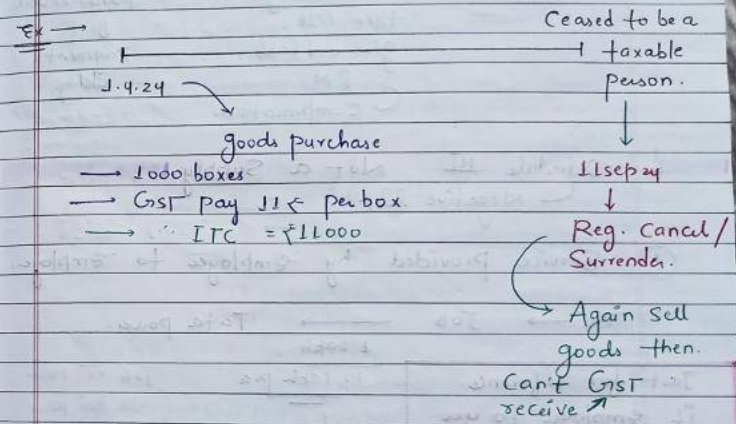 Ex →
Ceased to be a
taxable
person.
1.4.24
goods purchase
→ 1000 boxes
→ GST pay 11₹ per box.
→ ∴ ITC = ₹11000
11sep24
Reg. Cancel/
Surrender.
Again sell
goods then.
Can't GST
receive